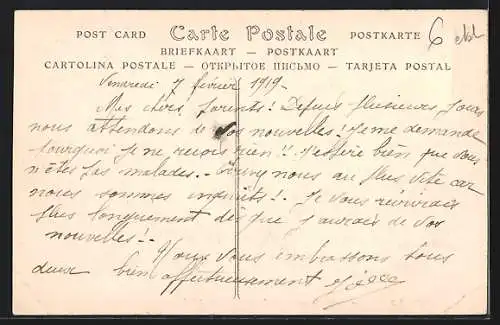 POST CARD Carte Postale POSTKARTE 6
BRIEFKAART — POSTKAART
CARTOLINA POSTALE — ОТКРЫТОЕ ПИСЬМО — TARJETA POSTAL
Vendredi 7 février 1919.
Mes chers Parents! Depuis plusieurs jours
nous attendons de vos nouvelles! Je me demande
pourquoi je ne reçois rien!! J'espère bien que vous
n'êtes pas malades. Ecrivez nous au plus vite car
nous sommes inquiets! Je vous écrirais
plus longuement dès que j'aurais de vos
nouvelles!
Nous vous embrassons tous
deux bien affectueusement